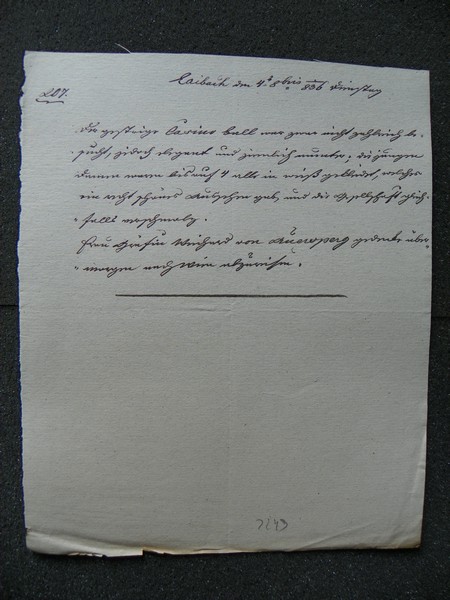 Laibach den 4t 8bris 836 Dienstag
207.
Der gestrige Casino ball war zwar nicht zahlreich be-
sucht, jedoch elegant und ziemlich munter; die jungen
Damen waren bis auf 4 alle in weiß gekleidet, welches
ein recht schönes Aussehen gab, und die Gesellschaft gleich-
falls verschönerte.
Frau Gräfin Weichard von Auersperg gedenkt über-
morgen nach Wien abzureisen.
7293